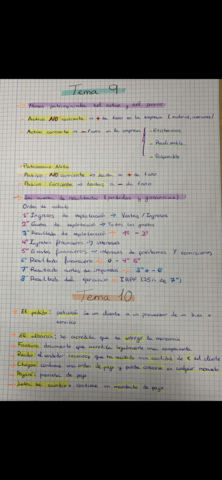 Tema 9
→ Masas patrimoniales del activo y del pasivo
- Activo NO corriente → + de 1 año en la empresa
- Activo corriente → - 1 año en la empresa → Existencias
→ Realizable
→ Disponible
→ Patrimonio Neto
- Pasivo NO corriente → deudas → + de 1 año
- Pasivo corriente → deudas → - de 1 año
→ La cuenta de resultados
Orden de cálculo
1º Ingresos de explotación → Ventas / Ingresos
2º Gastos de explotación → Todos los gastos
3º Resultado de explotación → 1º - 2º
4º Ingresos financieros → intereses
5º Gastos financieros → intereses de préstamos y comisiones
6º Resultado financiero → 4º 5º
7º Resultado antes de impuestos → 3º 6
8º Resultado del ejercicio → de 7º
Tema 10
→ El pedido: petición de un cliente a un proveedor de un bien o servicio
→ El albarán: se acredita que se entrega la mercancía
→ Factura: documento que acredita legalmente una compraventa
→ Recibo: el vendedor reconoce que ha recibido una cantidad de € del cliente
→ Cheque: contiene una orden de pago y puede cobrarse en cualquier momento
→ Pagaré: promesa de pago
→ Letra de cambio: contiene un mandato de pago